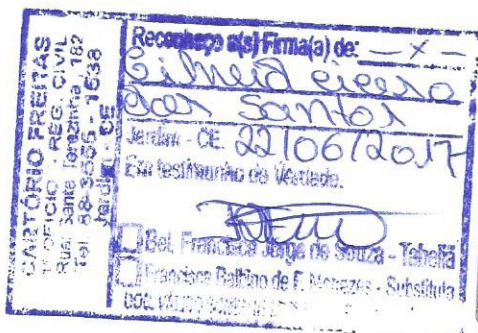 CARTÓRIO FREITAS
1º OFÍCIO - REG. CIVIL
Rua: Santa Terezinha, 182
Tel. 88-3555-1638
Jardim - CE
Reconheço a(s) Firma(a) de: — x —
Cícero
dos Santos
Jardim - CE 22/06/2017
Em testimunho da Verdade.
Bel. Francisca Jorge de Souza - Tabeliã
Francisca Balbino de F. Menezes - Substituta